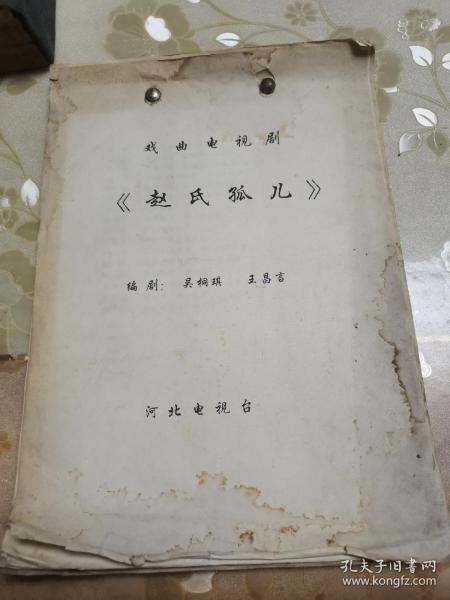 戏曲电视剧
《赵氏孤儿》
编剧：吴桐琪 王昌言
河北电视台
孔夫子旧书网
www.kongfz.com